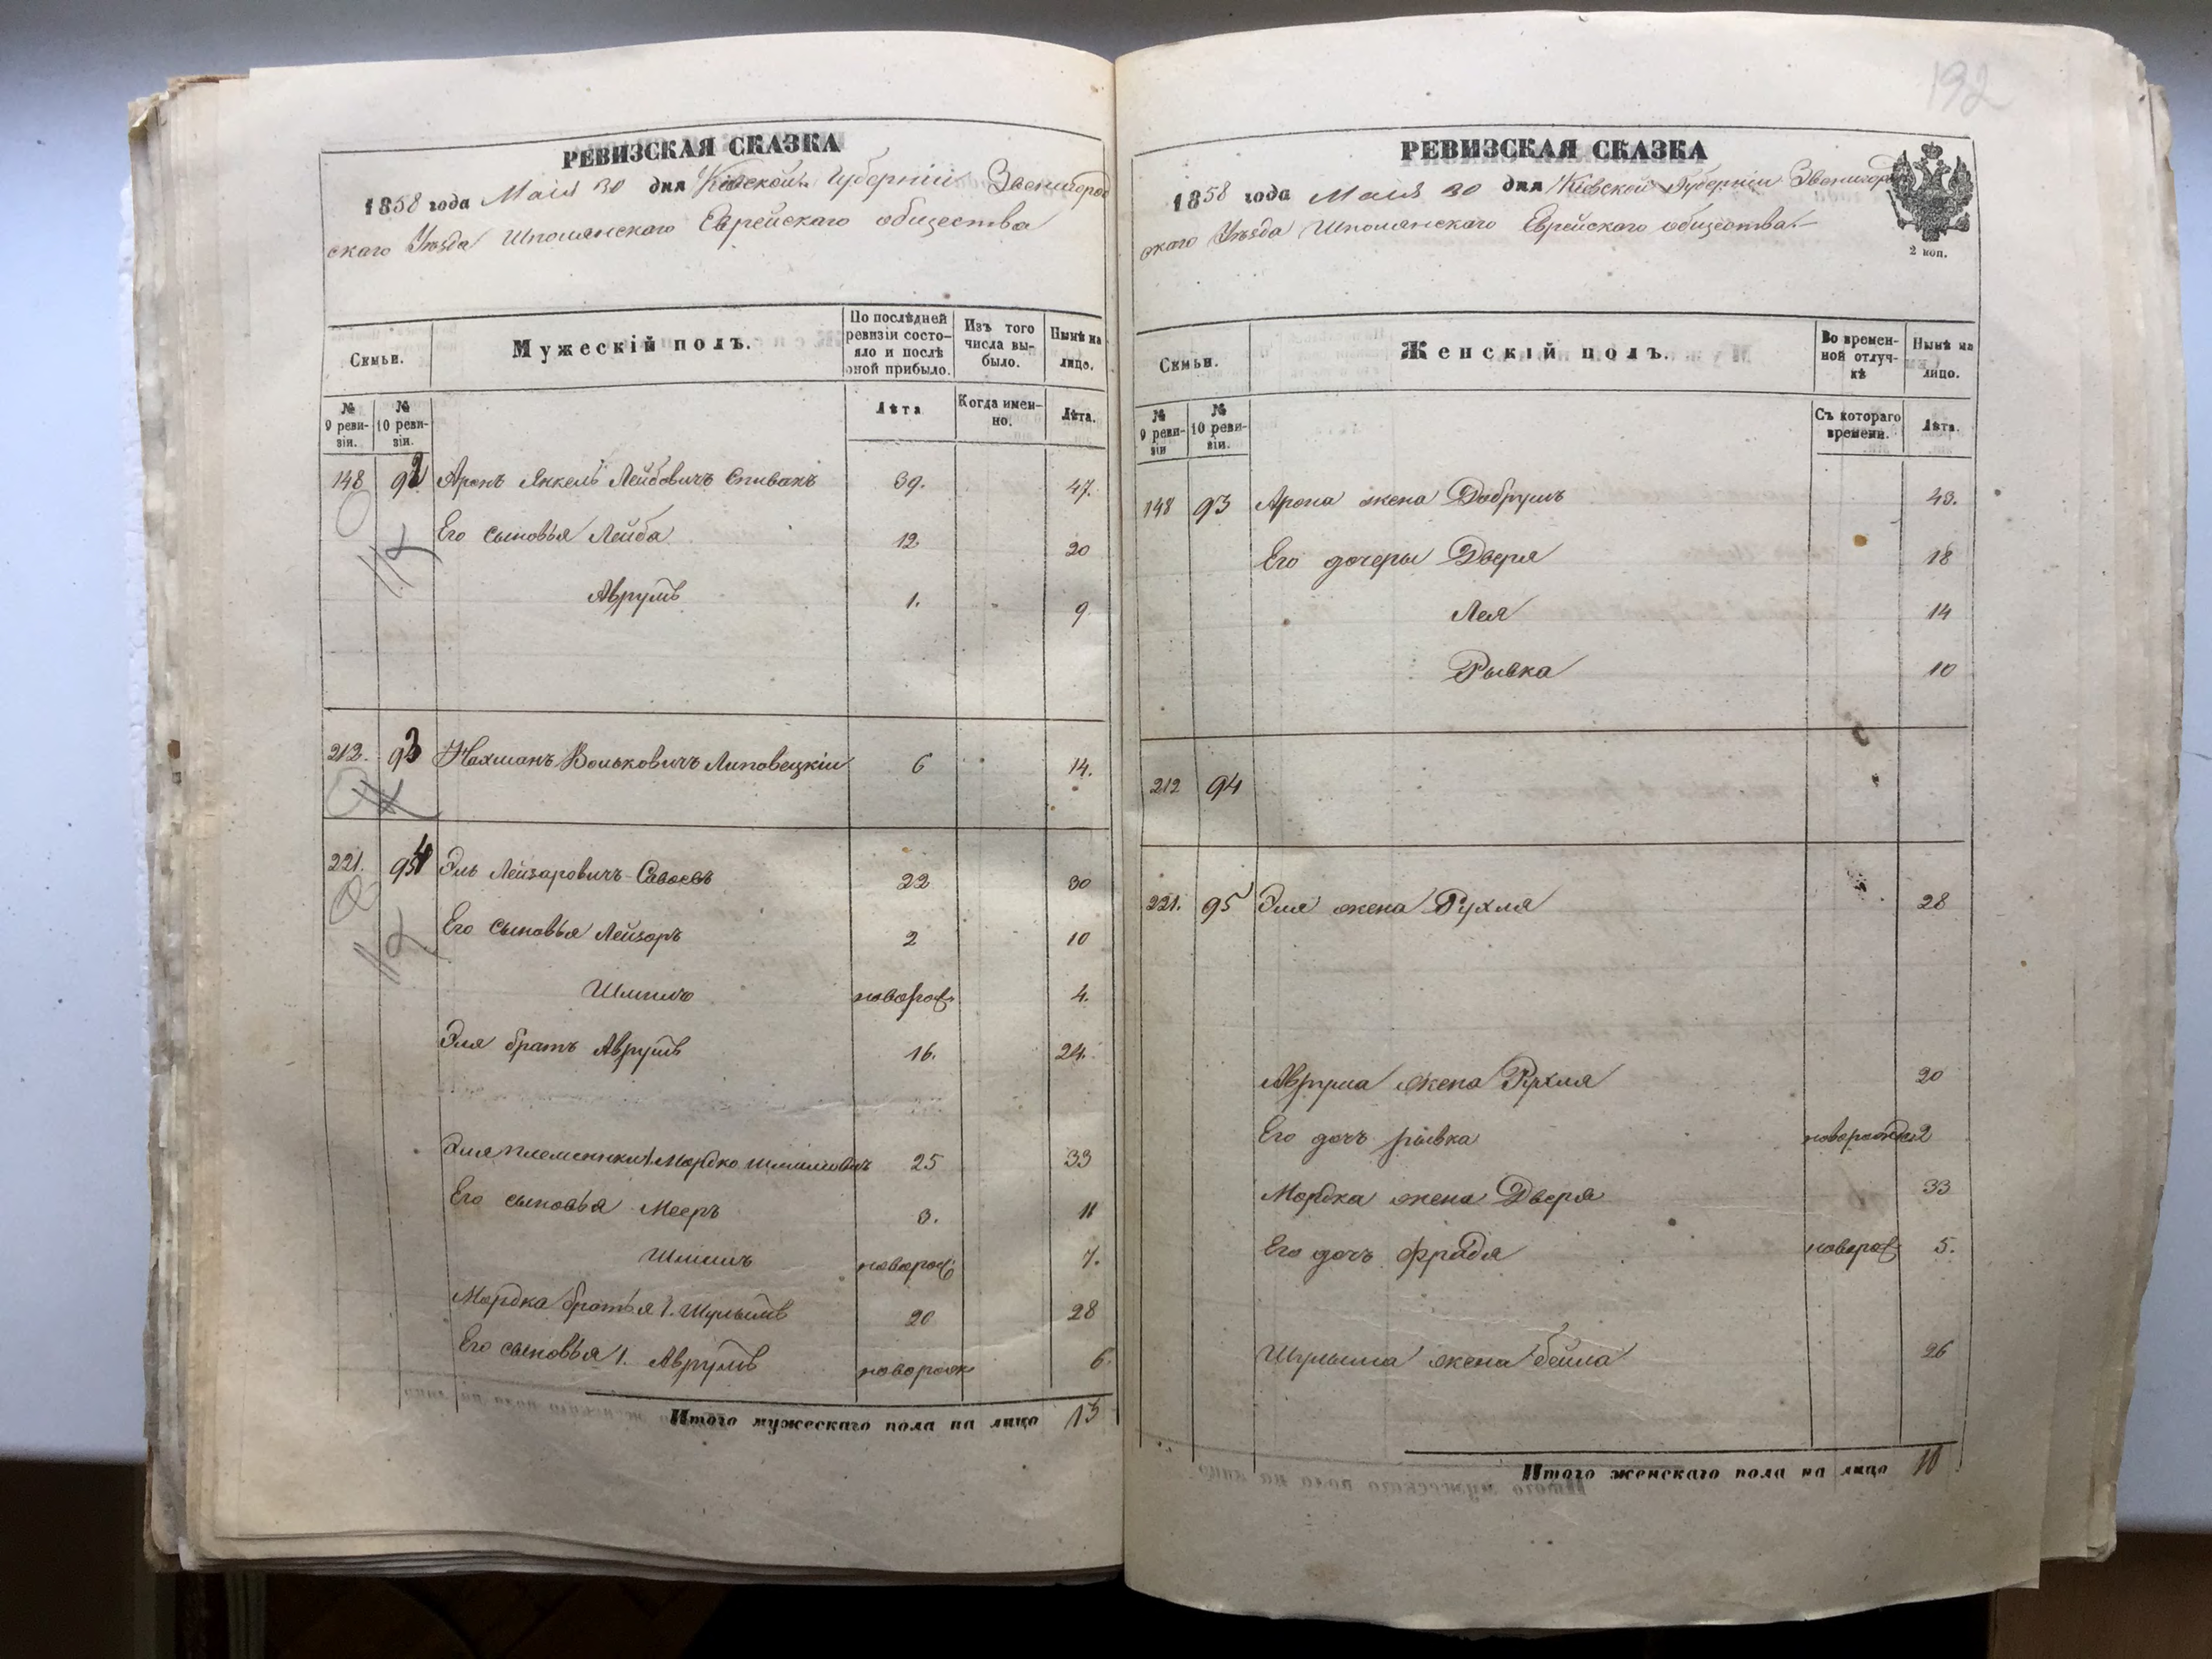 192
РЕВИЗСКАЯ СКАЗКА
1858 года Маія 30 дня Кіевской Губерніи Звенигород
скаго Уѣзда Шполянскаго Еврейскаго общества
Семьи.
Мужескій полъ.
По послѣдней ревизіи состо-яло и послѣ оной прибыло.
Изъ того числа вы-было.
Нынѣ на лицо.
№ 9 реви-зіи.
№ 10 реви-зіи.
Лѣта
Когда имен-но.
Лѣта.
148 92 Аронъ Янкель Лейбовичъ Спивакъ 39. 47.
Его сыновья Лейба 12. 20
Аврумъ 1. 9
212. 93 Нахманъ Вольковичъ Липовецкій 6 14.
221. 94 Эль Лейзаровичъ 22 30
Его сыновья Лейзоръ 2 10
Шмиль новорож. 4.
Эля братъ Аврумъ 16. 24.
Эля племенники 1. Мордко Шмилиовичъ 25 33
Его сыновья Мееръ 3. 11
Шмиль новорож 7.
Мордка братья 1. Шулымъ 20 28
Его сыновья 1. Аврумъ новорож 6.
Итого мужескаго пола на лицо 13
РЕВИЗСКАЯ СКАЗКА
1858 года Маія 30 дня Кіевской Губерніи Звенигород
скаго Уѣзда Шполянскаго Еврейскаго общества.
2 коп.
Семьи.
Женскій полъ.
Во времен-ной отлуч-кѣ
Нынѣ на лицо.
№ 9 реви-зіи
№ 10 реви-зіи.
Съ котораго времени.
Лѣта.
148 93 Арона жена Добрушъ 43.
Его дочеры Двера 18
Лея 14
Рывка 10
212 94
221. 95 Эля жена Рухля 28
Аврума жена Рухля 20
Его дочъ рывка новорожден 2
Мордка жена Двера 33
Его дочъ Фрадя новорож 5.
Шулыма жена бейла 26
Итого женскаго пола на лицо 10